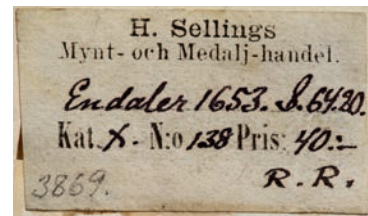 H. Sellings
Mynt- och Medalj-handel.
Endaler 1653. S. 64.20.
Kat. X. N:o 138 Pris: 40:-
3869. R. R.